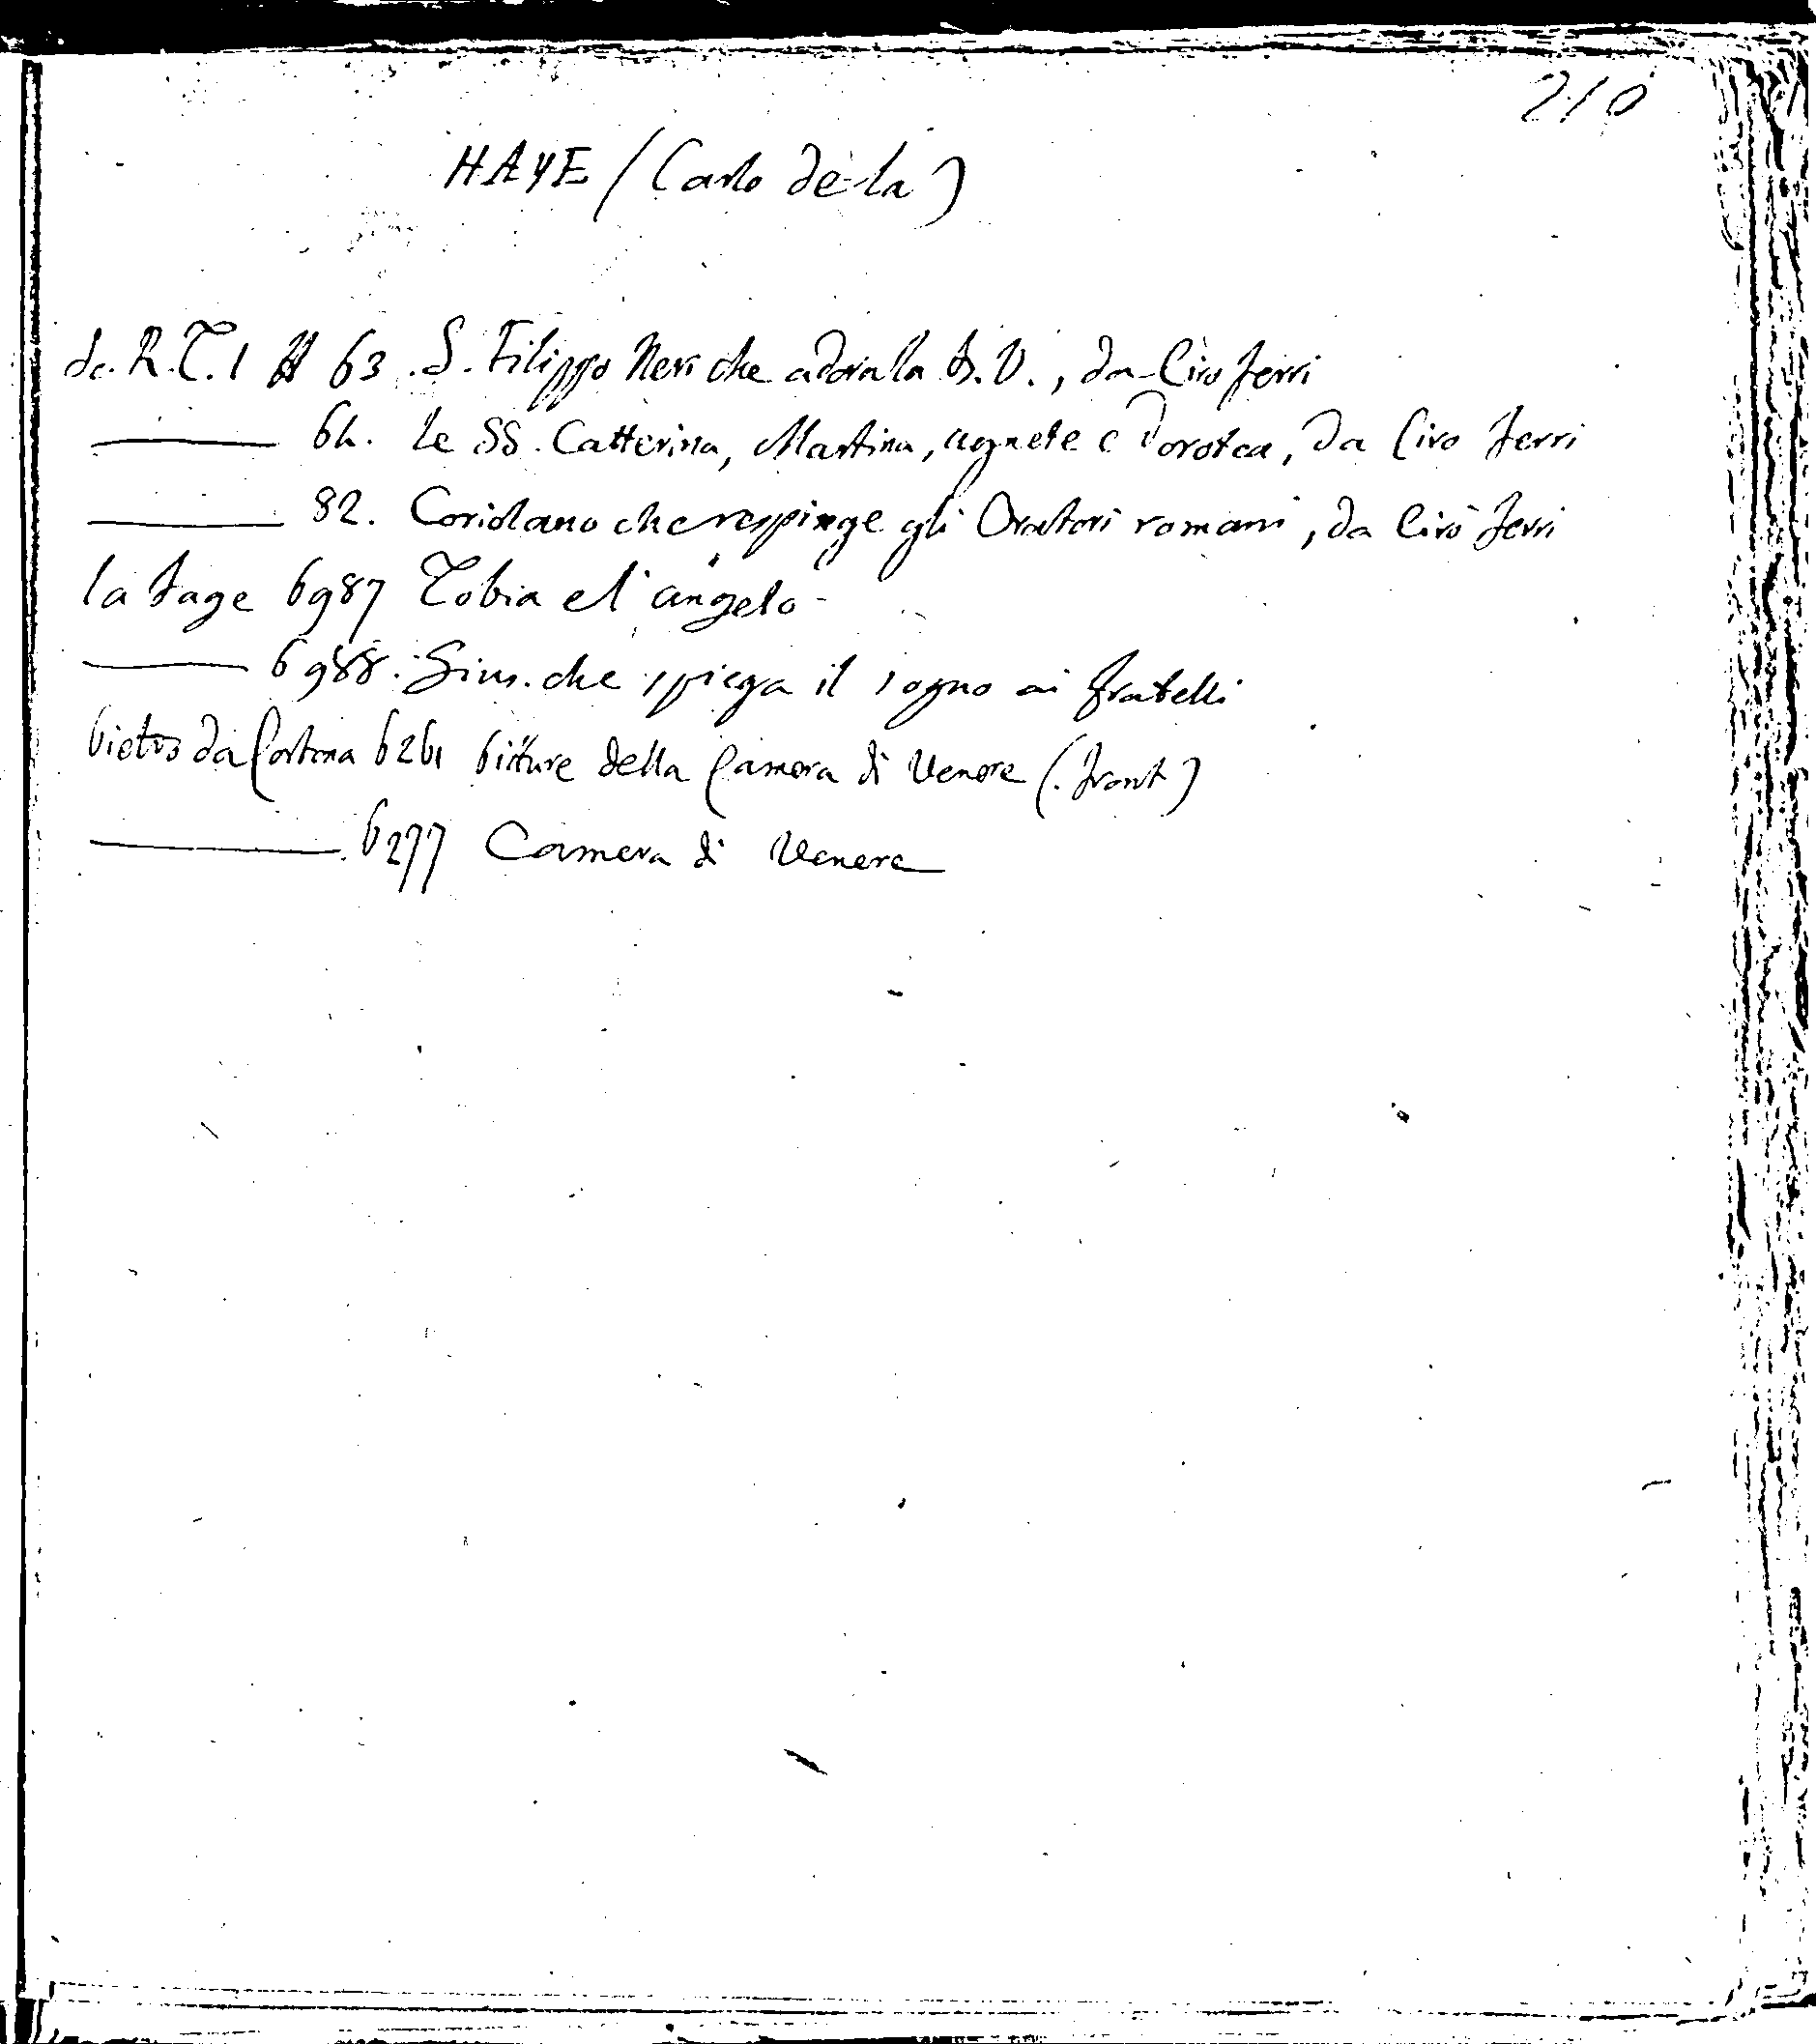 210
HAYE (Carlo de la)
Sc. R. T. 1 63. S. Filippo Neri che adora la B. V., da Ciro Ferri
64. Le SS. Catterina, Martina, Agnete e Dorotea, da Ciro Ferri
82. Coriolano che respinge gli Oratori romani, da Ciro Ferri
la Fage 6987 Tobia e l'angelo
6988. Gius. che spiega il sogno ai fratelli
Pietro da Cortona 6261 Pitture della Camera di Venere (front)
6277 Camera di Venere